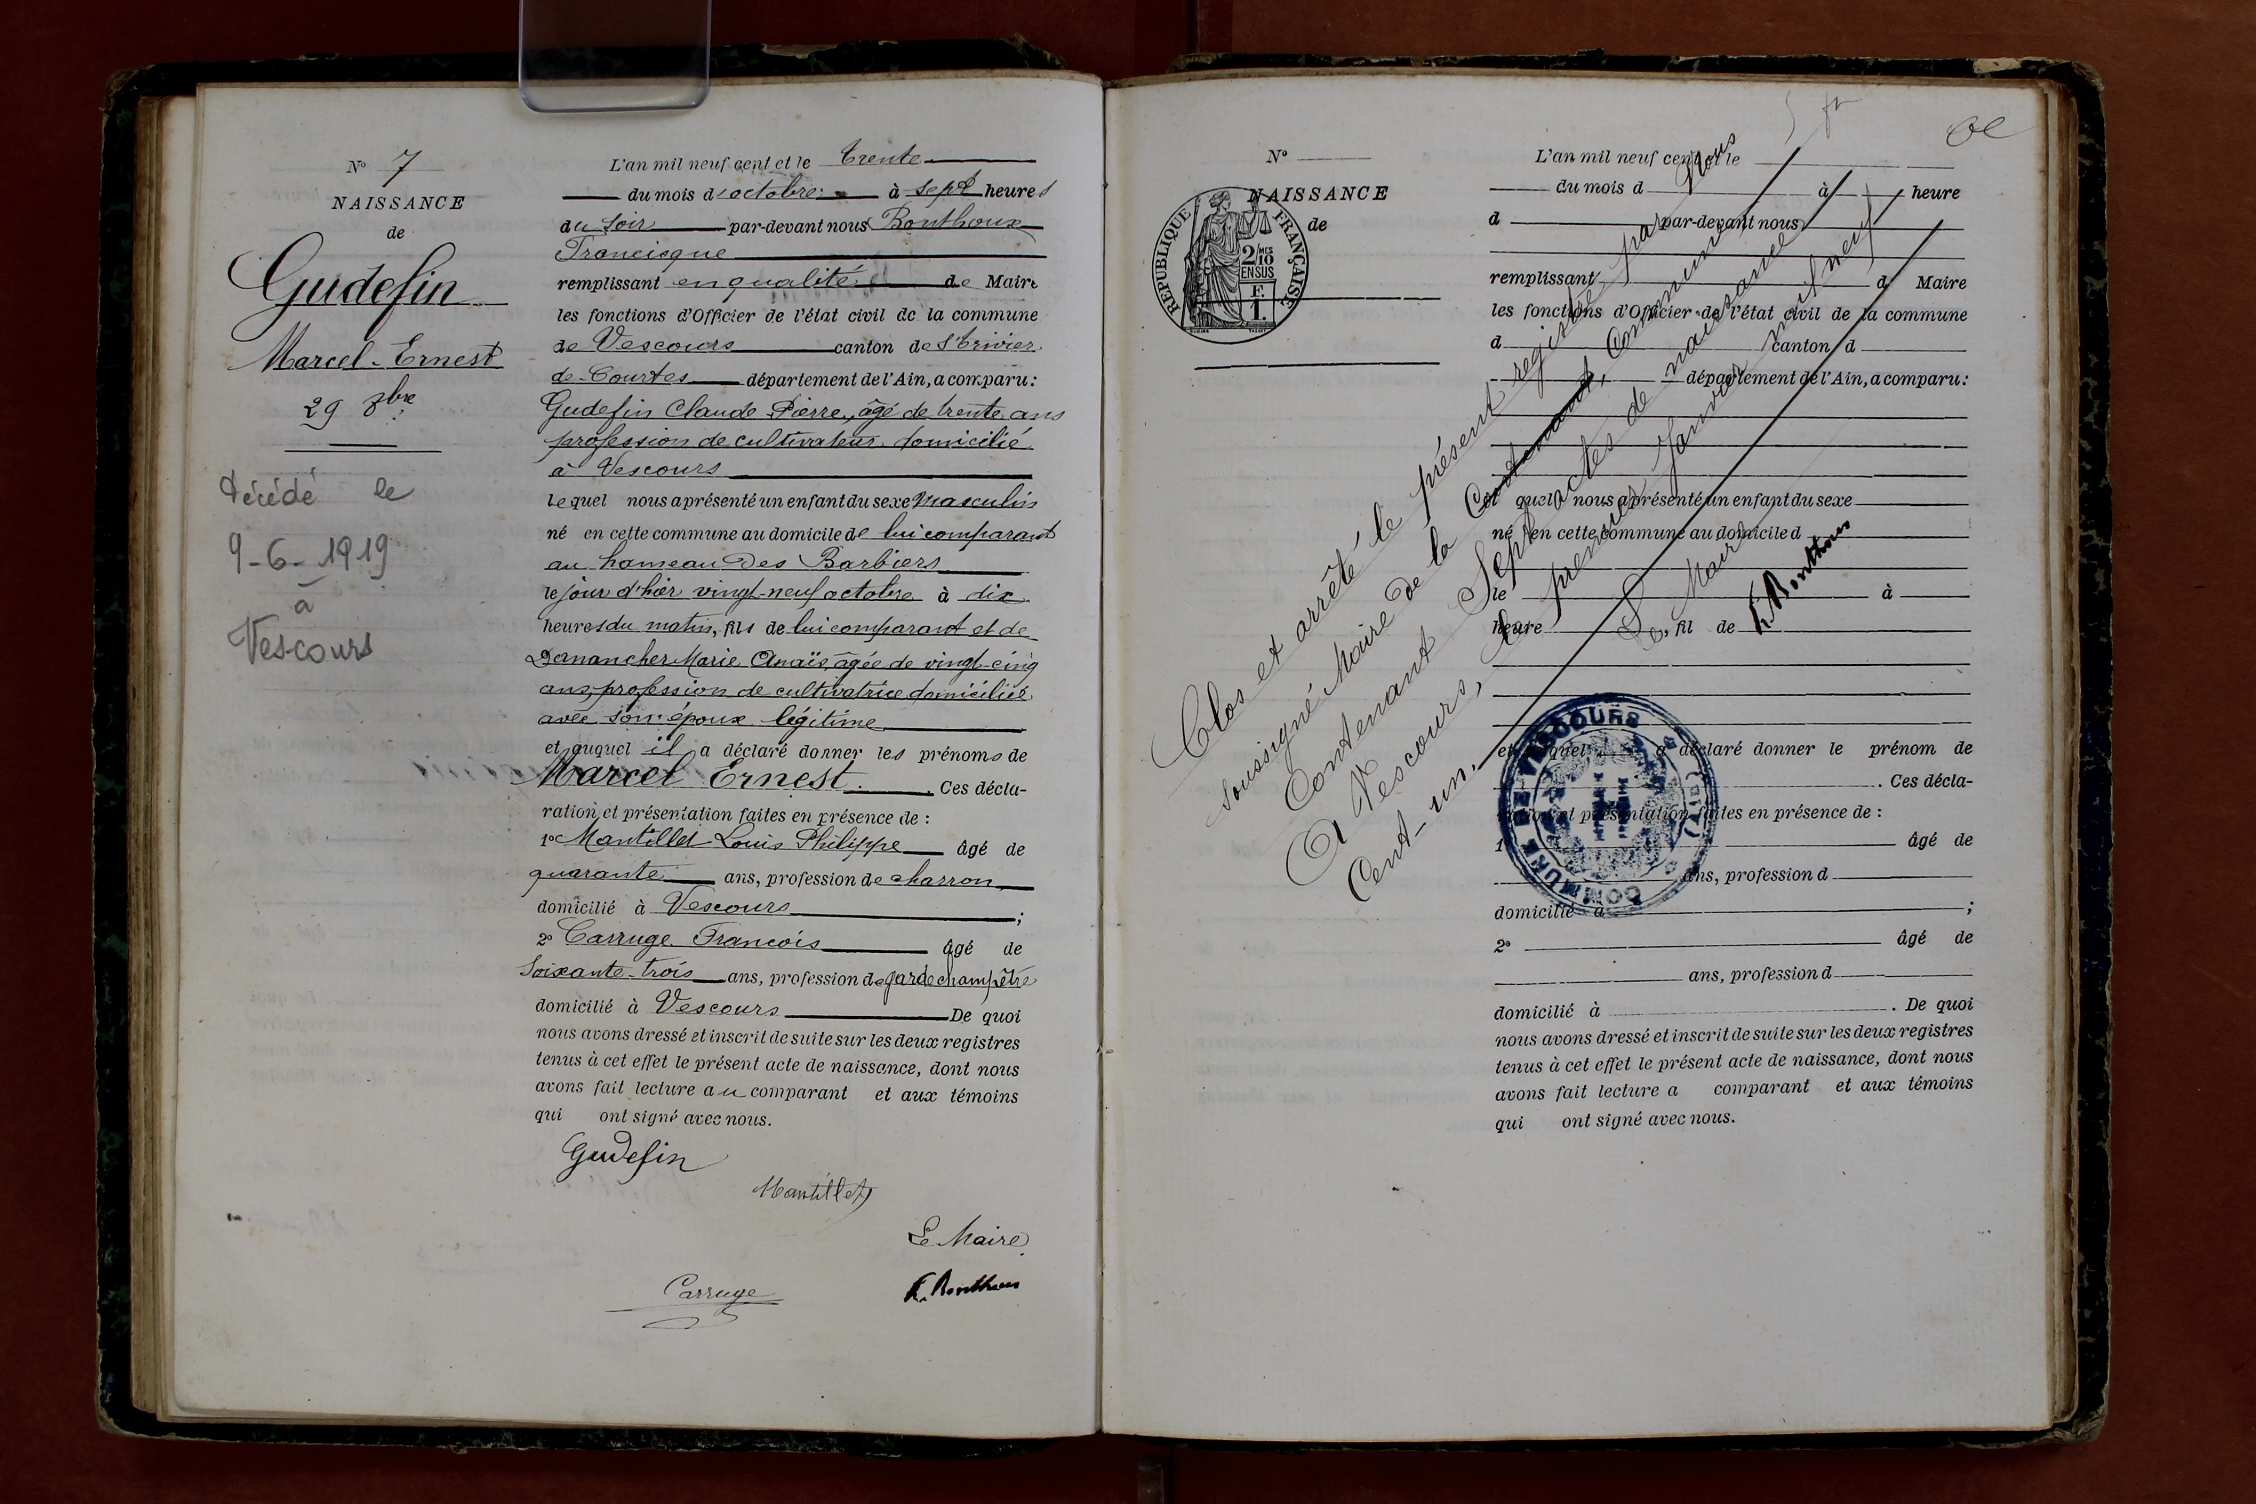 N° 7
NAISSANCE
de
Gudefin
Marcel-Ernest
29 8bre
Décédé le
9-6-1919
à
Vescours
L'an mil neuf cent et le trente
du mois d'octobre à sept heures
du soir par-devant nous Bonthoux
Francisque
remplissant en qualité de Maire
les fonctions d'Officier de l'état civil de la commune
de Vescours canton de St Trivier
de-Courtes département de l'Ain, a comparu :
Gudefin Claude Pierre, âgé de trente ans
profession de cultivateur domicilié
à Vescours
lequel nous a présenté un enfant du sexe masculin
né en cette commune au domicile de lui comparant
au hameau des Barbiers
le jour d'hier vingt-neuf octobre à dix
heures du matin, fils de lui comparant et de
Demancher Marie Anaïs, âgée de vingt-cinq
ans, profession de cultivatrice domiciliée
avec son époux légitime
et auquel il a déclaré donner les prénoms de
Marcel Ernest. Ces décla-
ration et présentation faites en présence de :
1° Mantillet Louis Philippe âgé de
quarante ans, profession de charron
domicilié à Vescours ;
2° Carruge François âgé de
soixante-trois ans, profession de garde champêtre
domicilié à Vescours De quoi
nous avons dressé et inscrit de suite sur les deux registres
tenus à cet effet le présent acte de naissance, dont nous
avons fait lecture au comparant et aux témoins
qui ont signé avec nous.
Gudefin
Mantillet
Le Maire
Carruge
F. Bonthoux
5 fr
N°
NAISSANCE
de
RÉPUBLIQUE FRANÇAISE
2/10 MES
EN SUS
F.
1.
L'an mil neuf cent et le
du mois d à heure
d par-devant nous
remplissant d Maire
les fonctions d'Officier de l'état civil de la commune
d canton d
département de l'Ain, a comparu :
le quel nous a présenté un enfant du sexe
né en cette commune au domicile d
le à
heure , fil de
et auquel a déclaré donner le prénom de
. Ces décla-
ration et présentation faites en présence de :
1° âgé de
ans, profession d
domicilié à ;
2° âgé de
ans, profession d
domicilié à . De quoi
nous avons dressé et inscrit de suite sur les deux registres
tenus à cet effet le présent acte de naissance, dont nous
avons fait lecture a comparant et aux témoins
qui ont signé avec nous.
Clos et arrêté le présent registre par Nous
soussigné Maire de la Contenant, Commune
Contenant Sept actes de naissance
A Vescours, le premier Janvier mil neuf
Cent-un.
Le Maire
F. Bonthoux
COMMUNE DE VESCOURS (AIN)